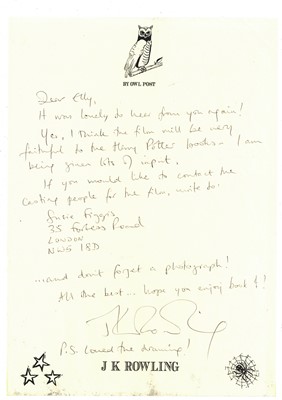 BY OWL POST
Dear Elly,
It was lovely to hear from you again!
Yes, I think the film will be very
faithful to the Harry Potter books – I am
being given lots of input.
If you would like to contact the
casting people for the film, write to:
Susie Figgis
35 Fortess Road
LONDON
NW5 1AD
...and don't forget a photograph!
All the best... hope you enjoy book 4!
JKRowling
P.S. Loved the drawing!
J K ROWLING